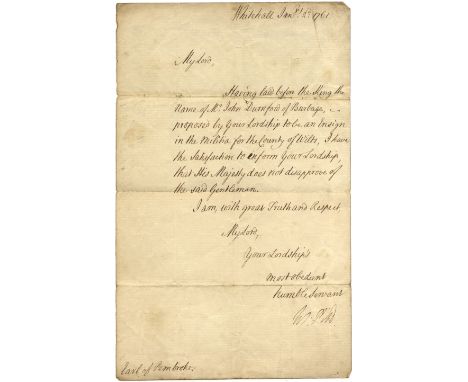 Whitehall Janry. 2d. 1761
My Lord,
Having laid before the King the
Name of Mr. John Durnford of Burbage,
proposed by Your Lordship to be an Ensign
in the Militia for the County of Wilts, I have
the Satisfaction to inform Your Lordship,
that His Majesty does not disapprove of
the said Gentleman.
I am, with great Truth and Respect,
My Lord,
Your Lordship's
most obedient
humble Servant
W. Pitt
Earl of Pembroke.